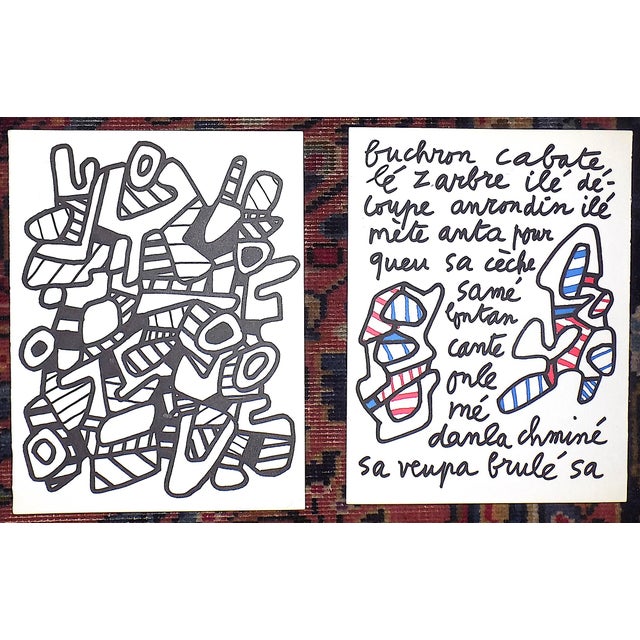 buchron cabaté
lé zarbre ilé dé-
coupe anrondin ilé
mète anta pour
queu sa cèche
samé
lontan
cante
onle
mé
danla chminé
sa veupa brulé sa